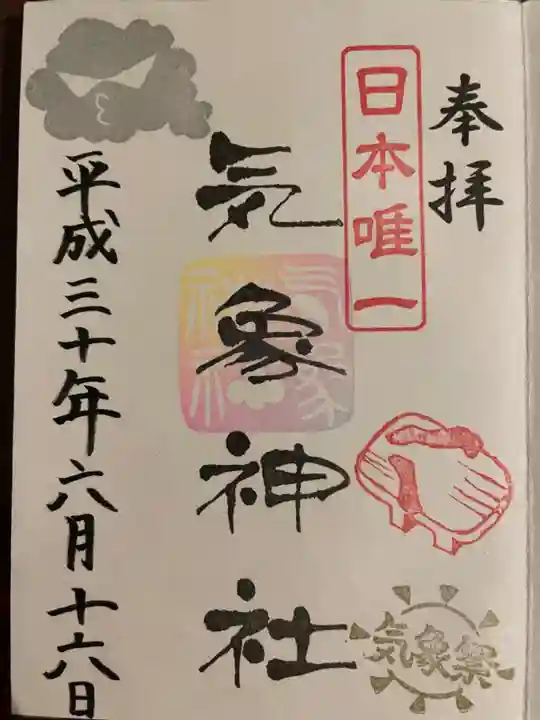 奉拝
日本唯一
気象神社
気象神社
気象祭
平成三十年六月十六日